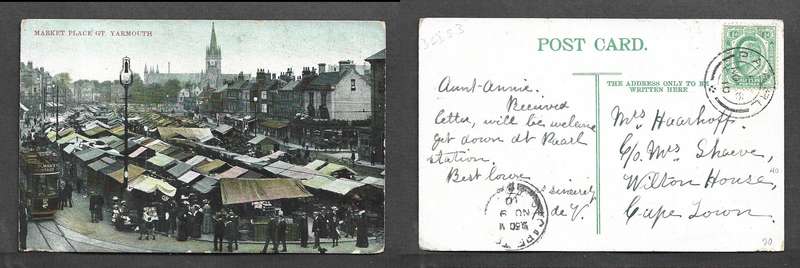 MARKET PLACE GT. YARMOUTH
5
30553
POST CARD.
THE ADDRESS ONLY TO BE
WRITTEN HERE
Aunt-Annie.
Received
letter, will be welcome
get down at Paarl
station.
Best love
sincerely
de V.
Mrs Haarhoff.
C/o Mrs Shaeve,
Wilton House,
Cape Town.
PAARL
CAPE T
9 50
NO 9
10
40
20